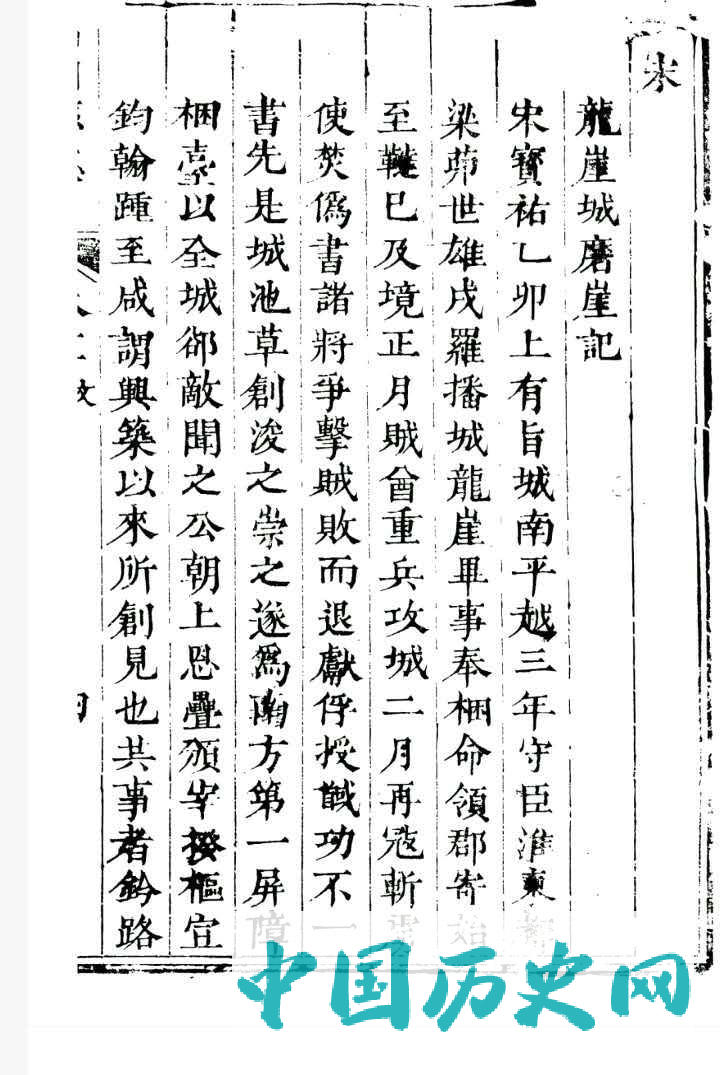 宋
龍崖城磨崖記
宋寳祐乙卯上有旨城南平越三年守臣淮東
梁茆世雄戌羅播城龍崖畢事奉梱命領郡寄始
至韃已及境正月賊酋重兵攻城二月再寇斬
使焚僞書諸將爭擊賊敗而退獻俘授馘功不一
書先是城池草創浚之崇之遂爲南方第一屏障
梱臺以全城郤敵聞之公朝上恩疊頒宰揆樞宣
鈞翰踵至咸謂興築以來所創見也共事者鈐路
中国历史网